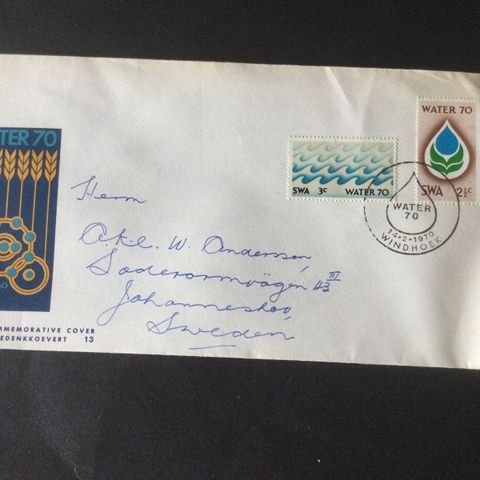 TER 70
WATER 70
SWA 2½c
SWA 3c WATER 70
WATER
70
14•2•1970
WINDHOEK
Herrn
W. Andersson,
43 III
Johanneshov,
Sweden
MMEMORATIVE COVER
EDENKKOEVERT 13